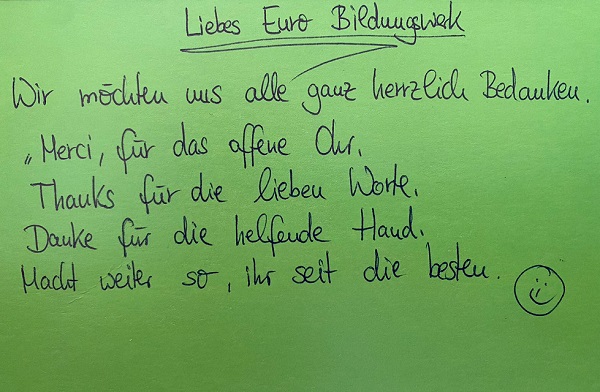 Liebes Euro Bildungswerk
Wir möchten uns alle ganz herzlich Bedanken.
„Merci, für das offene Ohr.
Thanks für die lieben Worte.
Danke für die helfende Hand.
Macht weiter so, ihr seit die besten.